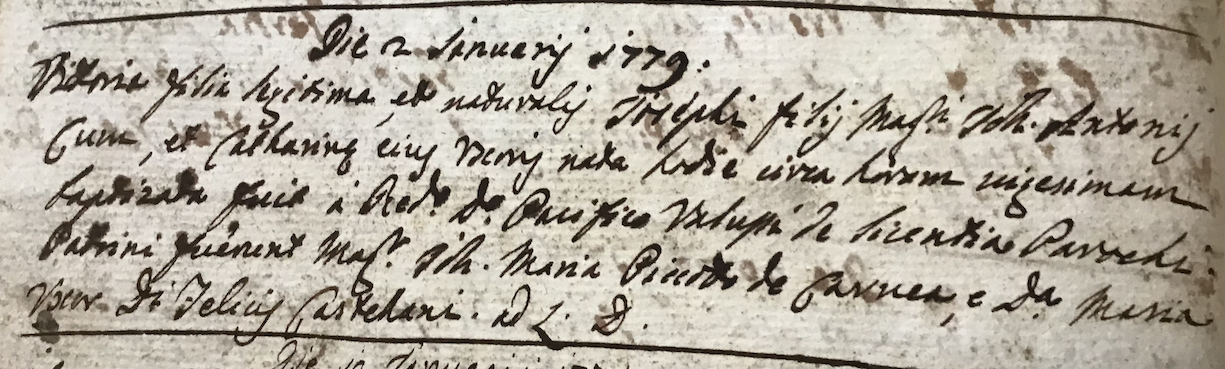 Die 2 Januarij 1779:
Vittoria filia legitima, et naturalis Josephi filij Mag.ri Joh. Antonij
Cum, et Catharinę eius Uxoris nata hodie circa horam vigesimam
baptizata fuit à Red.o D.o Pacifico Valussi de licentia Parochi.
Patrini fuerunt Mag.r Joh. Maria de Carnea, e D.a Maria
Uxor D.i Felicis Castelani. ad L. D.
Die Januarij